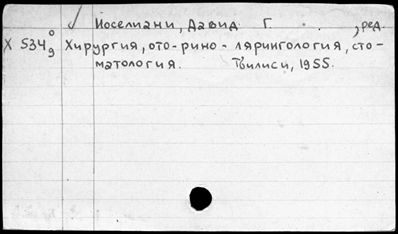 ✓ Иоселиани, Давид Г. , ред.
X 534 0/9 Хирургия, ото-рино-лярингология, сто-
матология. Тбилиси, 1955.